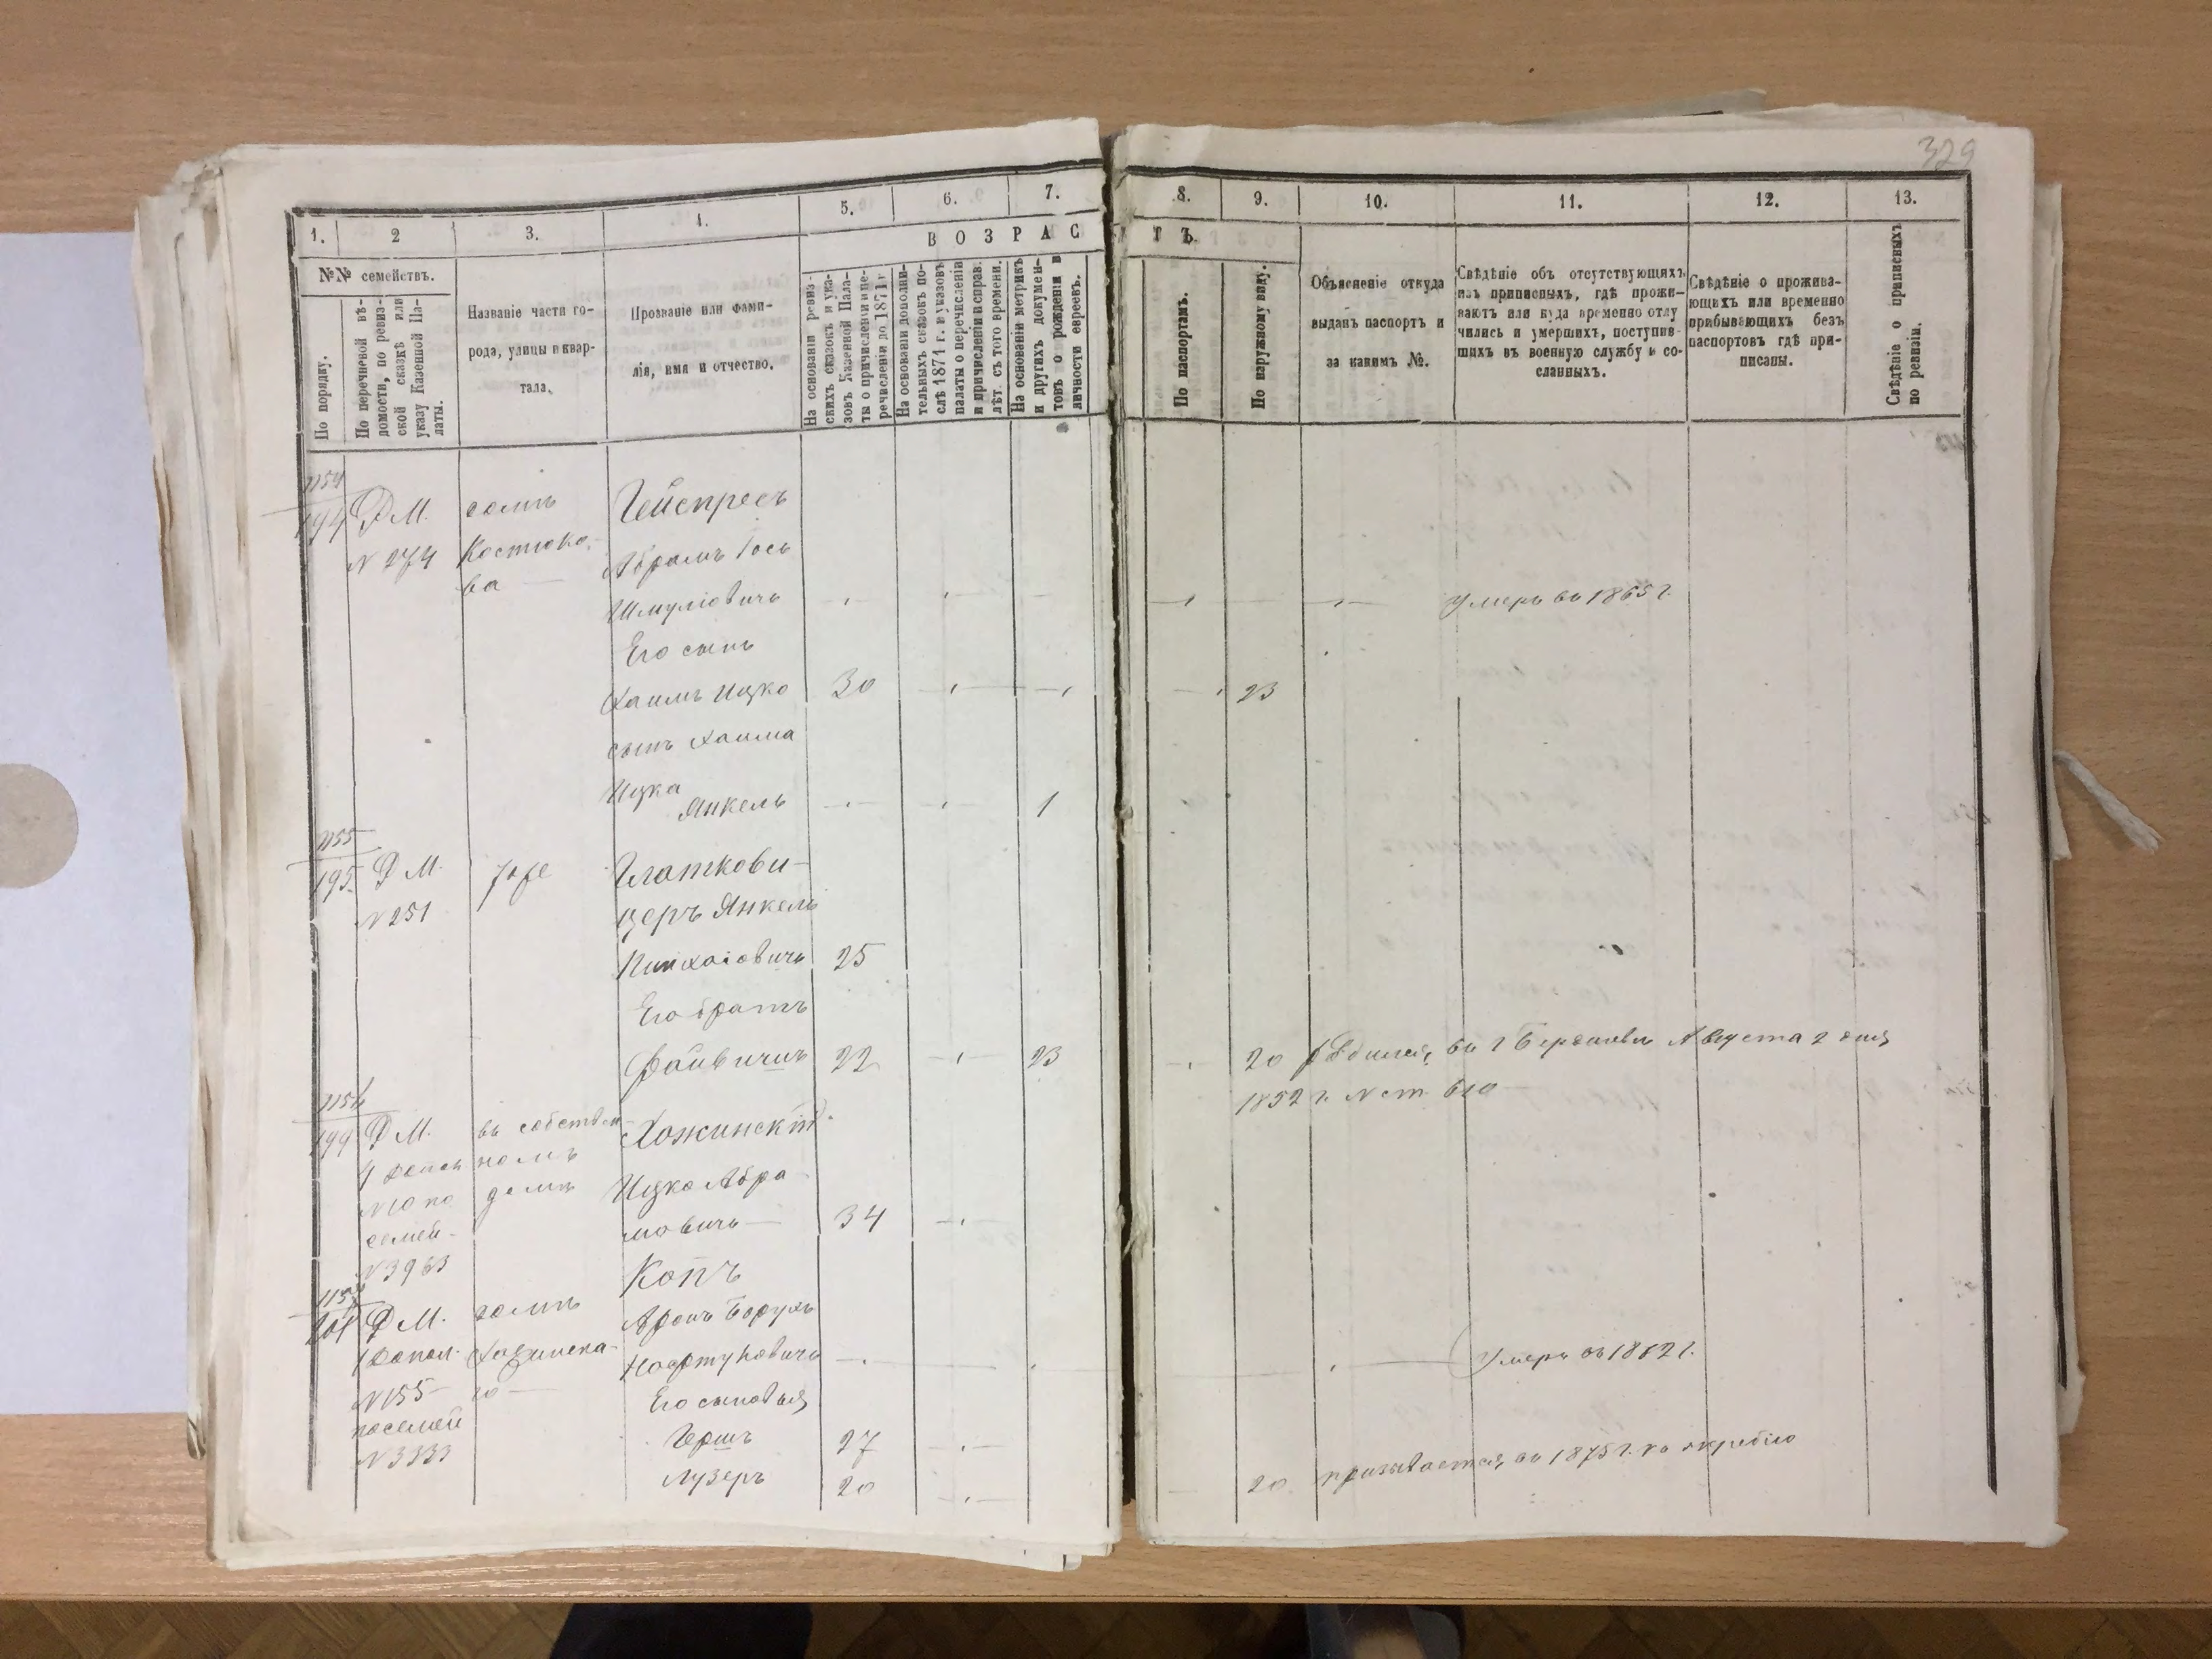 329
1. 2 3. 4. 5. 6. 7. 8. 9. 10. 11. 12. 13.
ВОЗРАСТЪ.
№№ семействъ.
По порядку.
По перечневой вѣ-
домости, по ревиз-
ской сказкѣ или
указу Казенной Па-
латы.
Названіе части го-
рода, улицы и квар-
тала.
Прозваніе или фами-
лія, имя и отчество.
На основаніи ревиз-
скихъ сказокъ и ука-
зовъ Казенной Пала-
ты о причисленіи и пе-
речисленіи до 1871 г.
На основаніи дополни-
тельныхъ сказокъ по-
слѣ 1871 г. и указовъ
палаты о перечисленіи
и причисленіи и справ.
лѣт. съ того времени.
На основаніи метрикъ
и другихъ докумен-
товъ о рожденіи и
личности евреевъ.
По паспортамъ.
По наружному виду.
Объясненіе откуда
выданъ паспортъ и
за какимъ №.
Свѣдѣніе объ отсутствующихъ
изъ приписныхъ, гдѣ прожи-
ваютъ или куда временно отлу
чились и умершихъ, поступив-
шихъ въ военную службу и со-
сланныхъ.
Свѣдѣніе о прожива-
ющихъ или временно
прибывающихъ безъ
паспортовъ гдѣ при-
писаны.
Свѣдѣніе о приписныхъ
по ревизіи.
1154
194 Д М. домъ Гейспресъ
N 274 Костюко- Абрамъ Іось
ва — Шмуліовичъ Умеръ въ 1865 г.
Его сынъ
Хаимъ Ицко 30 23
сынъ Хаима
Ицка
Янкель 1
1155
195 Д М. Глаткови-
N 251 церъ Янкель
Пинхасовичъ 25
Его братъ
Файвишъ 22 23 20 въ г Бердичевѣ Августа 2 дня
1852 г. N ст. 610
1156
199 Д М. въ собствен- Хожинскій
4 допол номъ
N 10 по домѣ Ицко Абра-
семей- мовичъ — 34
N 3963
Копъ
Д М. домъ Аронъ Борухъ
1 допол. Нафтуловичъ
N 155 го — Его сыновья
по семей Гершъ 27
N 3333 Лузеръ 20 20 призывается въ 1875 г. къ жребію